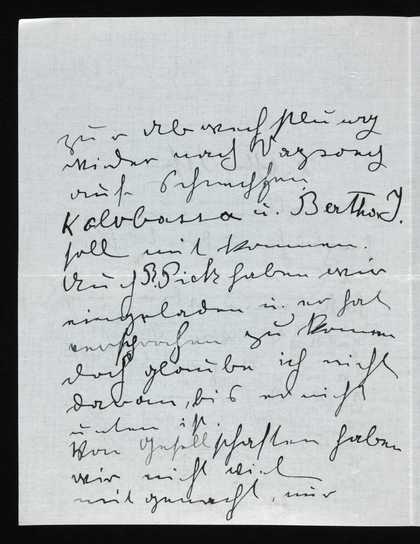 zur Abwechslung
wieder nach Pazsony
auf Schnepfen.
Kalobassa u. Bertha J.
soll mit kommen.
Auch P. Pick haben wir
eingeladen u. er hat
versprochen zu kommen
doch glaube ich nicht
daran, bis er nicht
unten ist.
Von Gesellschaften haben
wir nicht viel
mitgemacht, nur